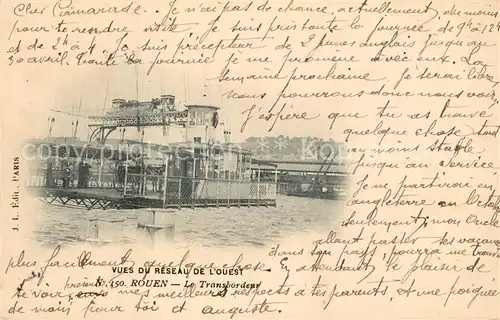 Cher Camarade. Je n'ai pas de chance, actuellement, du moins
pour te rendre visite. Je suis pris toute la journée, de 9h à 12h
et de 2h à 4. Je suis précepteur de 2 jeunes anglais jusqu'au
30 avril. Toute la journée je me promène avec eux. La
semaine prochaine, je serai libre
nous pourrons donc nous voir,
J'espère que tu as trouvé
quelque chose dans
au moins
jusqu'au service.
Je ne partirai en
angleterre qu'en
Seulement, mon Oncle
allant passer ses vacances
dans son pays, pourra me trouver
plus facilement quelque chose. En attendant le plaisir de
te voir, présente mes meilleurs respects à tes parents, et une poignée
de main pour toi et auguste.
VUES DU RÉSEAU DE L'OUEST
No. 150. ROUEN — Le Transbordeur
J. L. Édit., PARIS